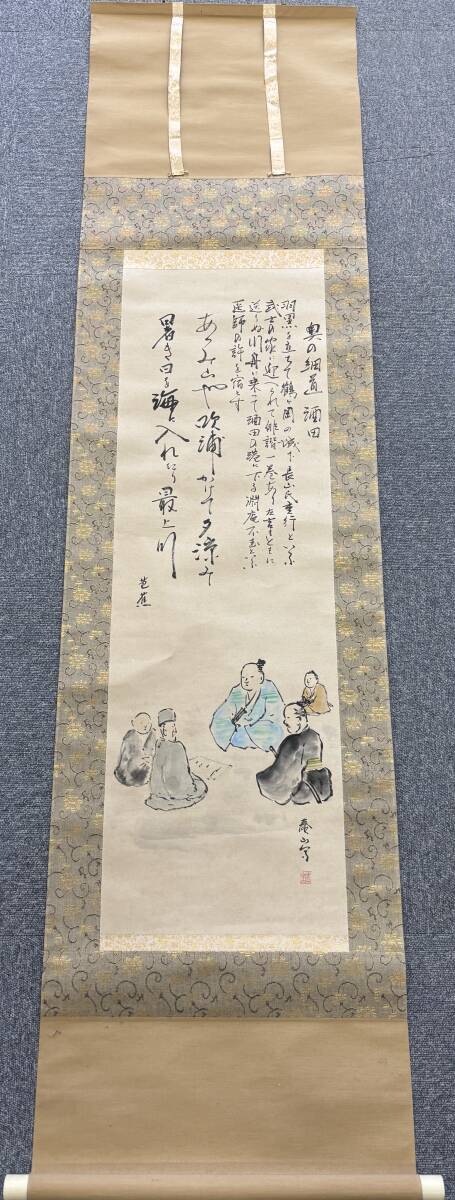 奥の細道 酒田
羽黒を立ちて鶴が岡の城下長山氏重行といふ
武士の家に迎へられて俳諧一巻あり左吉もともに
送りぬ川舟に乗って酒田の港に下る淵庵不玉といふ
医師の許を宿とす
あつみ山や吹浦かけて夕涼み
暑き日を海に入れたり最上川
芭蕉